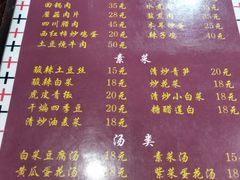 回锅肉 35元
蘑菇肉片 28元
四川腊肉 35元
西红柿炒鸡蛋 20元
土豆烧牛肉 50元
水煮肉
盐煎肉
木耳炒蛋
辣子鸡 40元
素 菜
酸辣土豆丝 15元
酸辣白菜 18元
虎皮青椒 20元
干煸四季豆 20元
清炒油麦菜 18元
清炒青笋 20元
炒花菜 18元
清炒小白菜 18元
糖醋莲白 18元
汤 类
白菜豆腐汤 18元
黄瓜蛋花汤 18元
素菜汤 18元
紫菜蛋花汤 18元